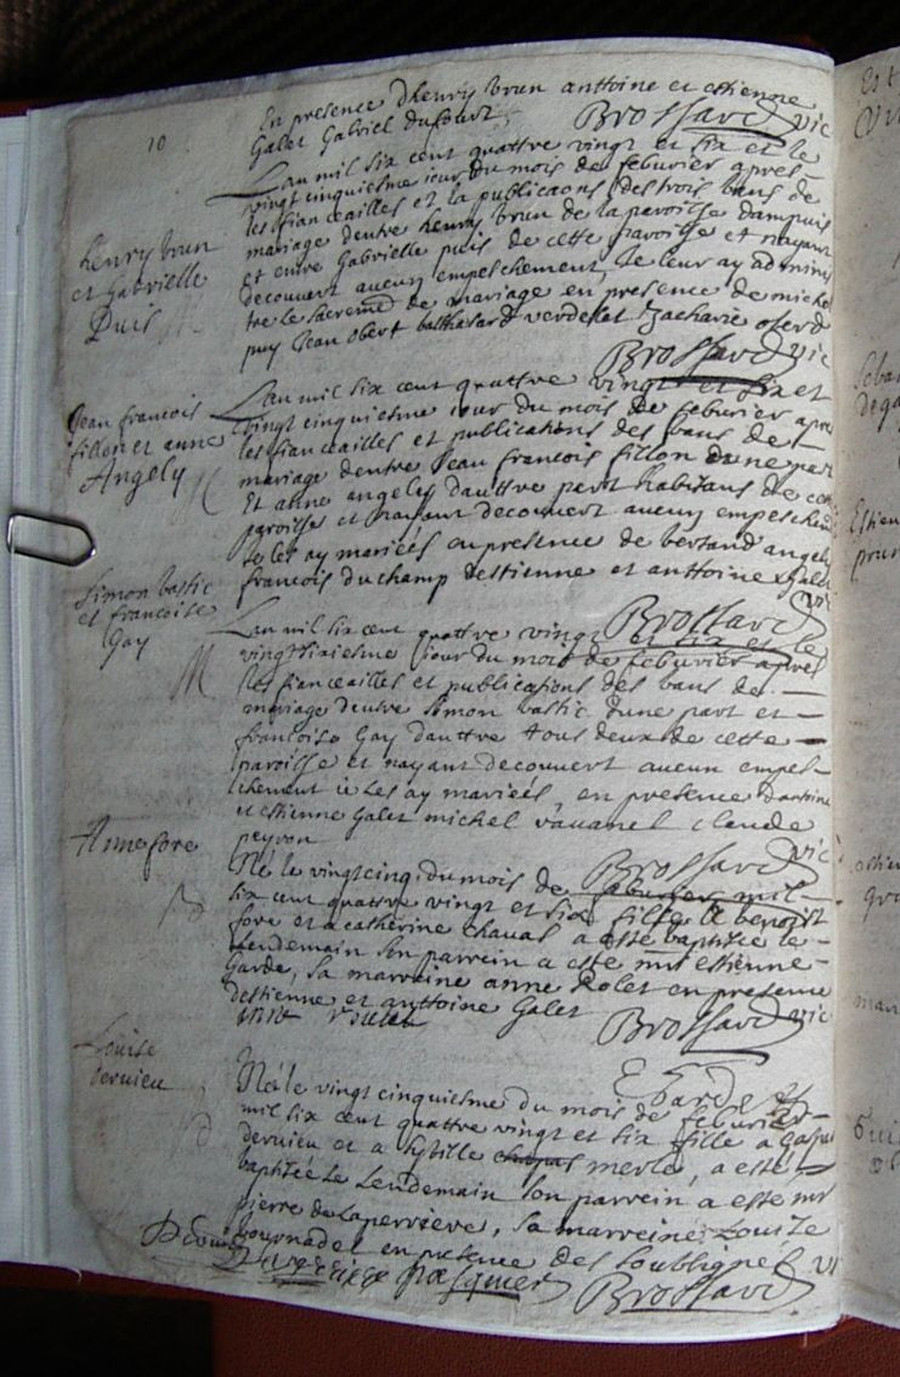 10
En presence dhenry brun anthoine et estienne
Galet Gabriel dufourt
Brossard vic
henry brun
et gabrielle
Puis
Lan mil six cent quattre vingt et six et le
vingt cinquiesme iour du mois de feburier apres
les fiancailles et la publicaons des trois bans de
mariage dentre henry brun de la paroisse dampuis
et entre Gabrielle puis de cette paroisse et nayant
decouvert aucun empeschement, Je leur ay adminis
tre le sacremt de mariage en presence de michel
puy Jean obert balthasard verdellet Zacharie
Brossard vic
Jean francois
fillon et anne
Angely
M
Lan mil six cent quattre vingt et six et
vingt cinquiesme iour du mois de feburier apres
les fiancailles et publications des bans de
mariage dentre Jean francois fillon dune part
Et anne angely dauttre part habitans de
paroisse et nayant decouvert aucun empeschem
Je les ay mariées en presence de bertand angely
francois duchamp destienne et anthoine Galet
Brossard vic
Simon bastic
et francoise
Gay
M
Lan mil six cent quattre vingt et six et le
vingt sixiesme jour du mois de feburier apres
les fiancailles et publications des bans de
mariage dentre Simon bastic dune part et
francoise Gay dauttre tous deux de cette
paroisse et nayant decouvert aucun empes-
chement ie les ay mariées, en presence dantoine
et estienne Galet michel ravanel claude
peyron
Brossard vic
Anne fore
Né le vingt cinq du mois de feburier mil
six cent quattre vingt et six fille a benoist
fore et a catherine chaval a esté baptisée le
Lendemain son parrein a este mr estienne
Garde, sa marreine anne Rolet en presence
destienne et anthoine Galet
Brossard vic
E Garde
Louise
dervieu
Née le vingt cinquiesme du mois de feburier
mil six cent quattre vingt et six fille a
dervieu et a Sybille merle, a esté
baptisée Le Lendemain son parrein a este mr
pierre de Laperriere, sa marreine Louize
en presence des soubsignes
Brossard vi